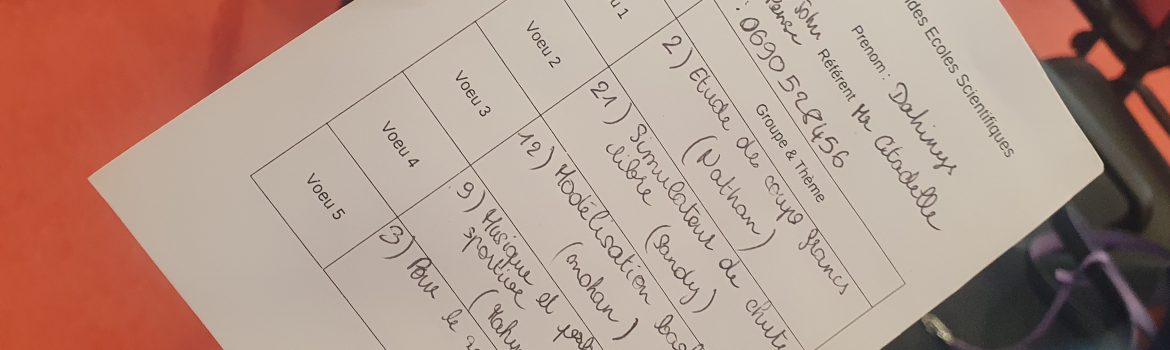 des Ecoles Scientifiques
Prenom : Dahinys
John Référent Mr Citadelle
: 0690 528456
Groupe & Thème
u 1 2) Etude des coups francs
(Nathan)
Voeu 2 21) Simulateur de chute
libre (Sandy)
Voeu 3 12) Modélisation
(mohan)
Voeu 4 9) Musique et
sportive
Voeu 5 3) Pour le